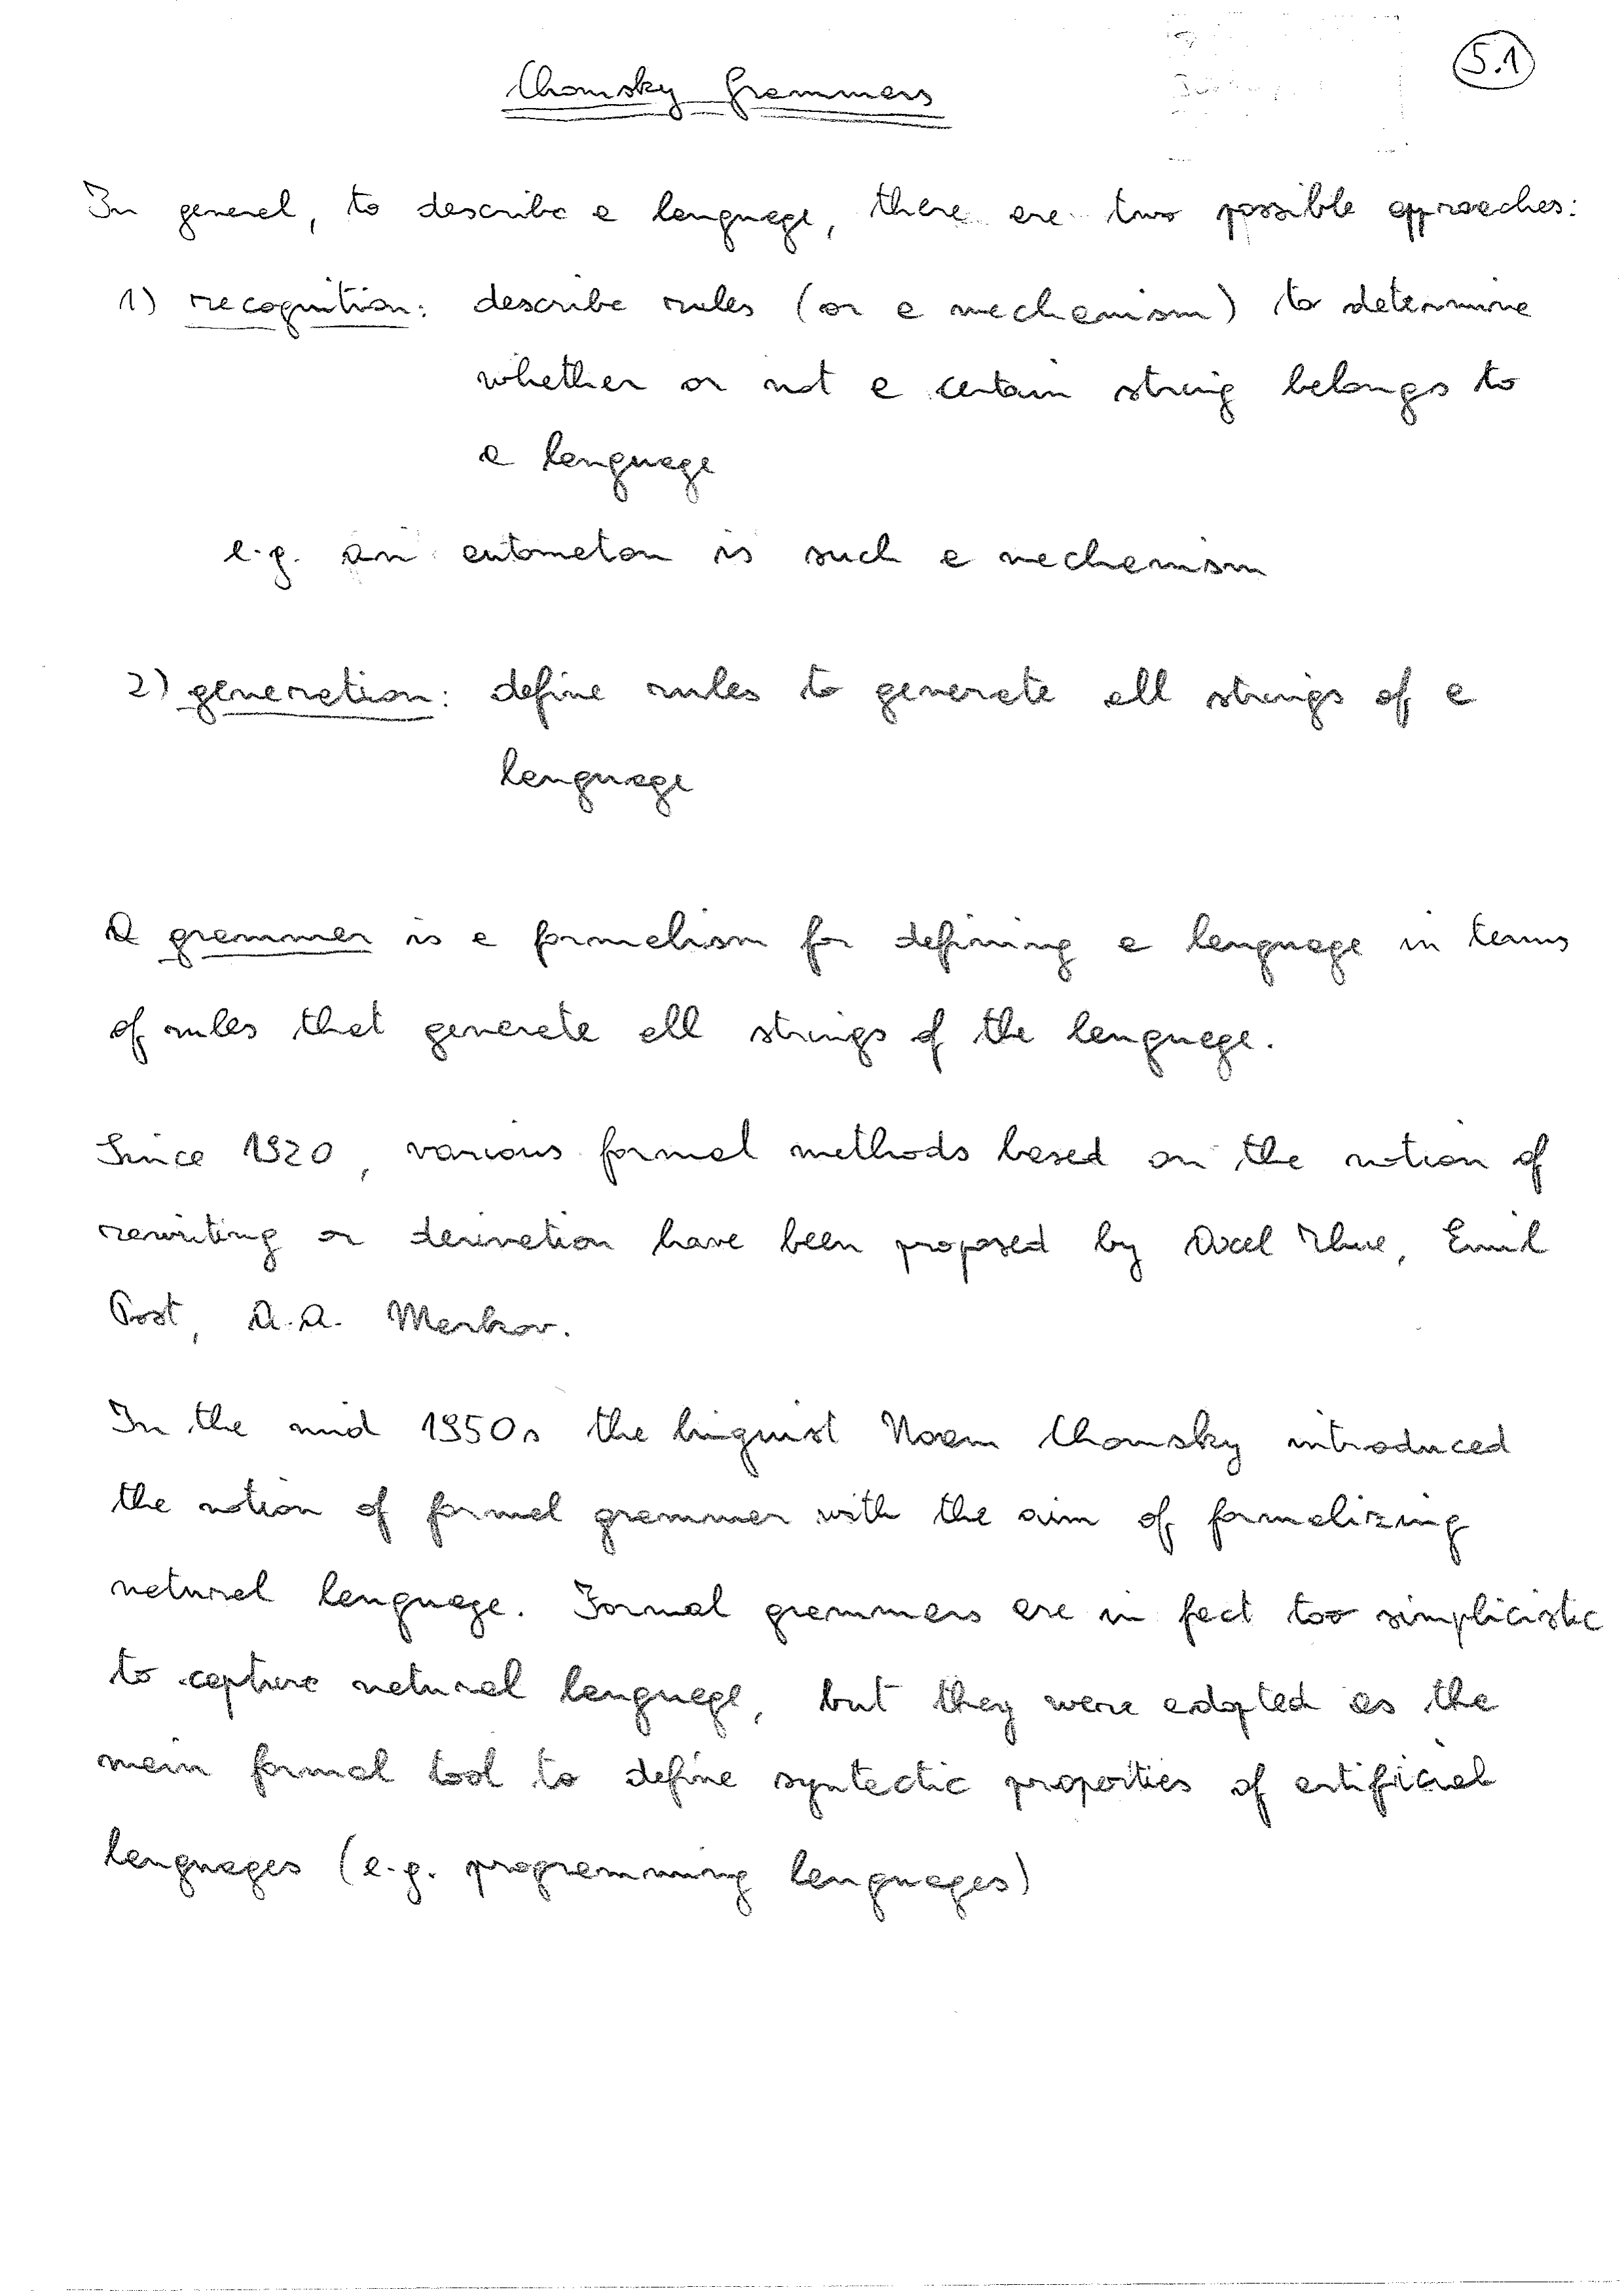 5.1
Chomsky Grammars
In general, to describe a language, there are two possible approaches:
1) recognition: describe rules (or a mechanism) to determine
whether or not a certain string belongs to
a language
e.g. an automaton is such a mechanism
2) generation: define rules to generate all strings of a
language
A grammar is a formalism for defining a language in terms
of rules that generate all strings of the language.
Since 1920, various formal methods based on the notion of
rewriting or derivation have been proposed by Axel Thue, Emil
Post, A.A. Markov.
In the mid 1950s the linguist Noam Chomsky introduced
the notion of formal grammar with the aim of formalizing
natural language. Formal grammars are in fact too simplicistic
to capture natural language, but they were adopted as the
main formal tool to define syntactic properties of artificial
languages (e.g. programming languages)